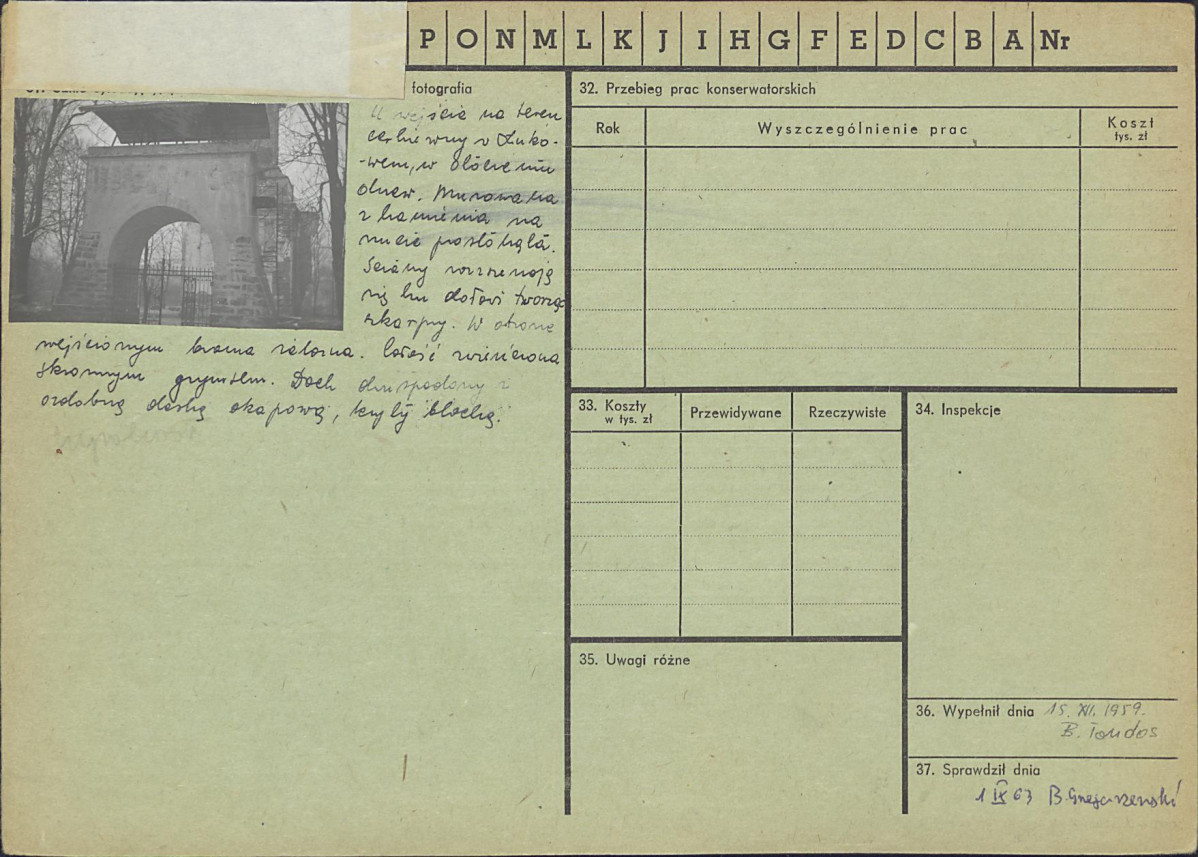 P O N M L K J I H G F E D C B A Nr
fotografia
U wejścia na teren
cerkiewny w Łuko-
-wem, w otoczeniu
drzew. Murowana
z kamienia na
rzucie prostokąta.
Ściany rozszerzają
się ku dołowi tworząc
skarpy. W otworze
wejściowym brama żelazna. Całość zwieńczona
skromnym gzymsem. Dach dwuspadowy z
ozdobną deską okapową, kryty blachą.
32. Przebieg prac konserwatorskich
Rok
Wyszczególnienie prac
Koszt
tys. zł
33. Koszty
w tys. zł
Przewidywane
Rzeczywiste
34. Inspekcje
35. Uwagi różne
36. Wypełnił dnia 15. XI. 1959.
B. Tondos
37. Sprawdził dnia
1 IX 63 B.